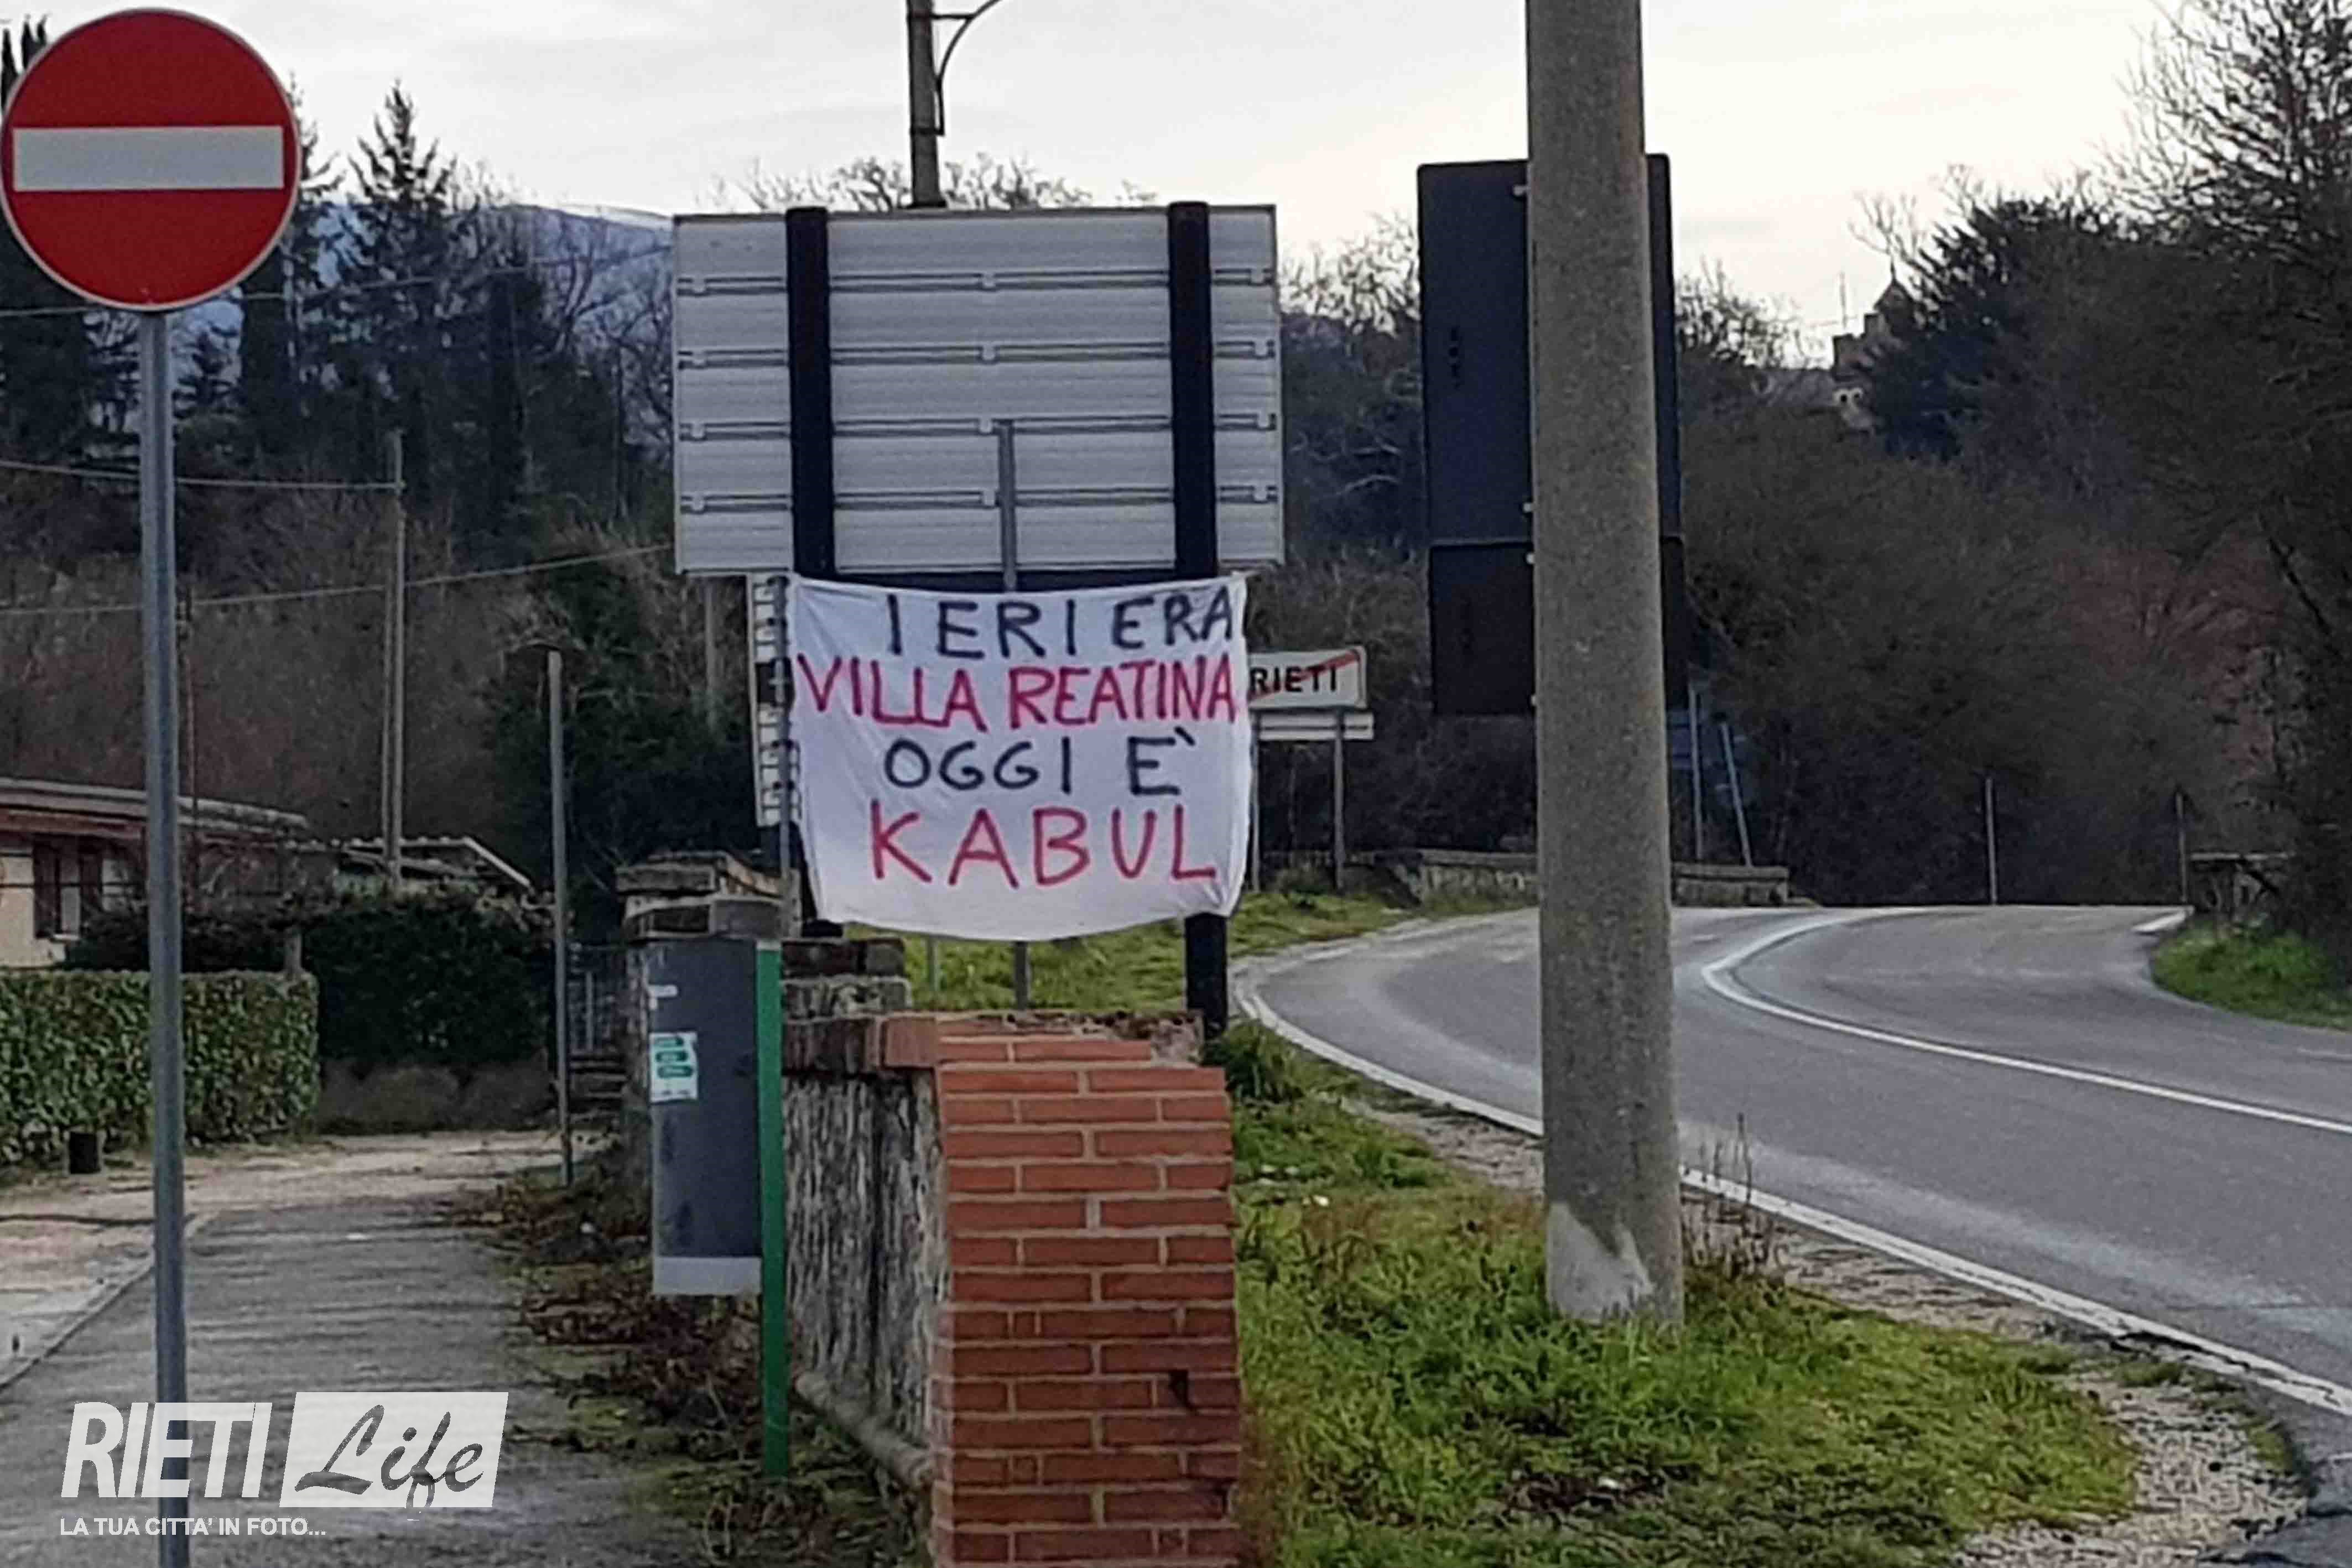 IERI ERA
VILLA REATINA
OGGI E'
KABUL
RIETI
RIETI Life
LA TUA CITTA' IN FOTO...